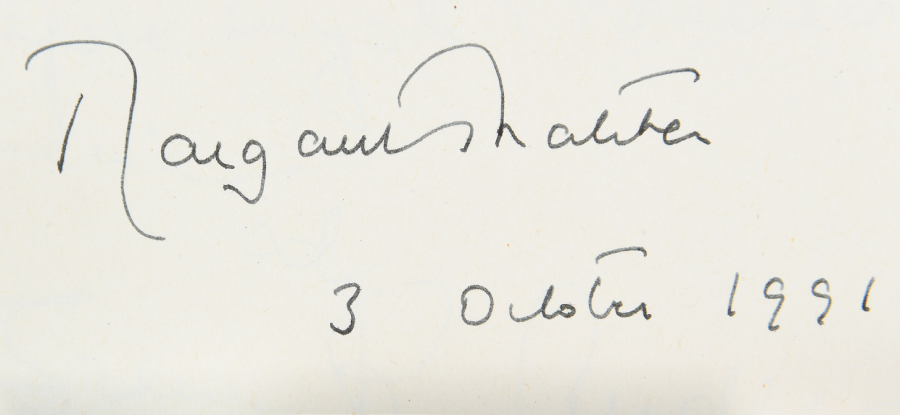 Margaret Thatcher
3 October 1991